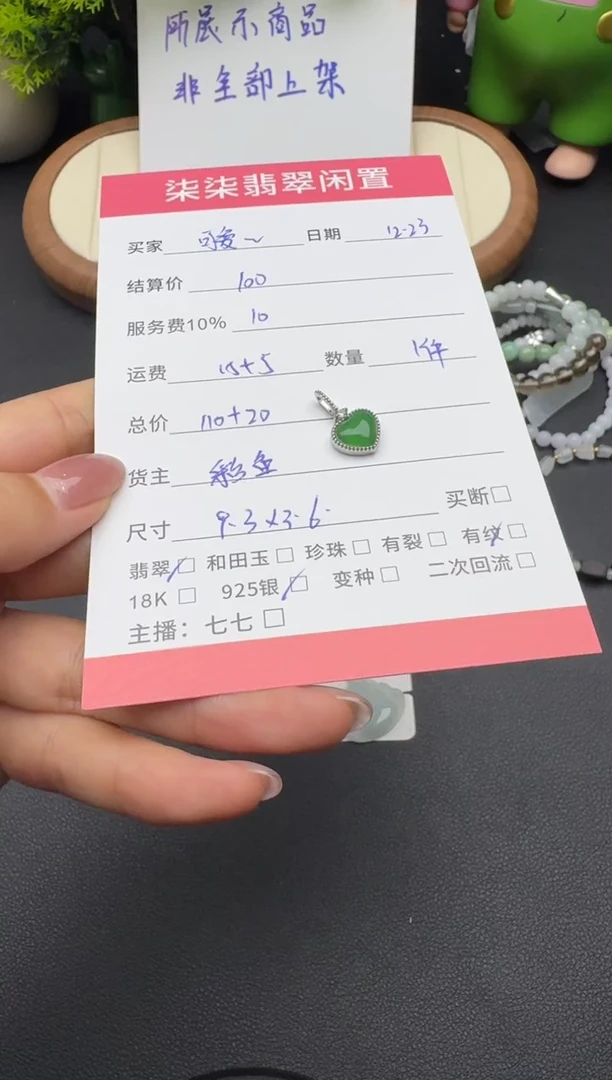 所展示商品
非全部上架
柒柒翡翠闲置
买家 可爱~ 日期 12-23
结算价 100
服务费10% 10
运费 15+5 数量 1件
总价 110+20
货主 彩鱼
尺寸 9.3×3.6 买断□
翡翠□ 和田玉□ 珍珠□ 有裂□ 有纹□
18K□ 925银□ 变种□ 二次回流□
主播：七七□